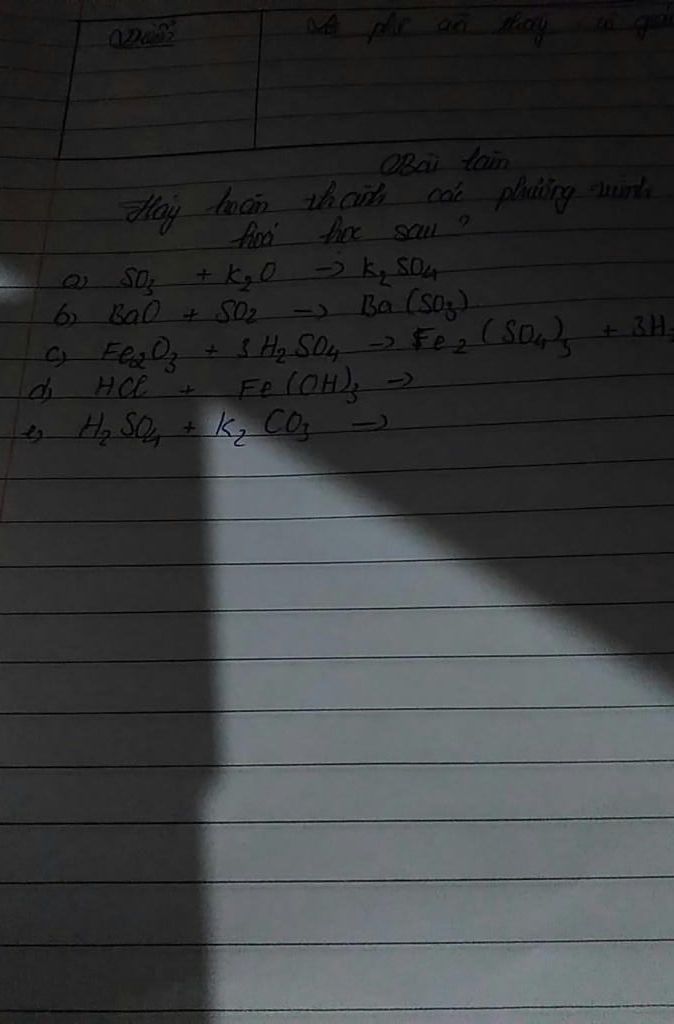 Bài làm
Hãy hoàn thành các phương trình
hoá học sau?
a) SO₃ + K₂O → K₂SO₄
b) BaO + SO₂ → Ba(SO₃)
c) Fe₂O₃ + 3H₂SO₄ → Fe₂(SO₄)₃ + 3H₂
d) HCl + Fe(OH)₃ →
e) H₂SO₄ + K₂CO₃ →